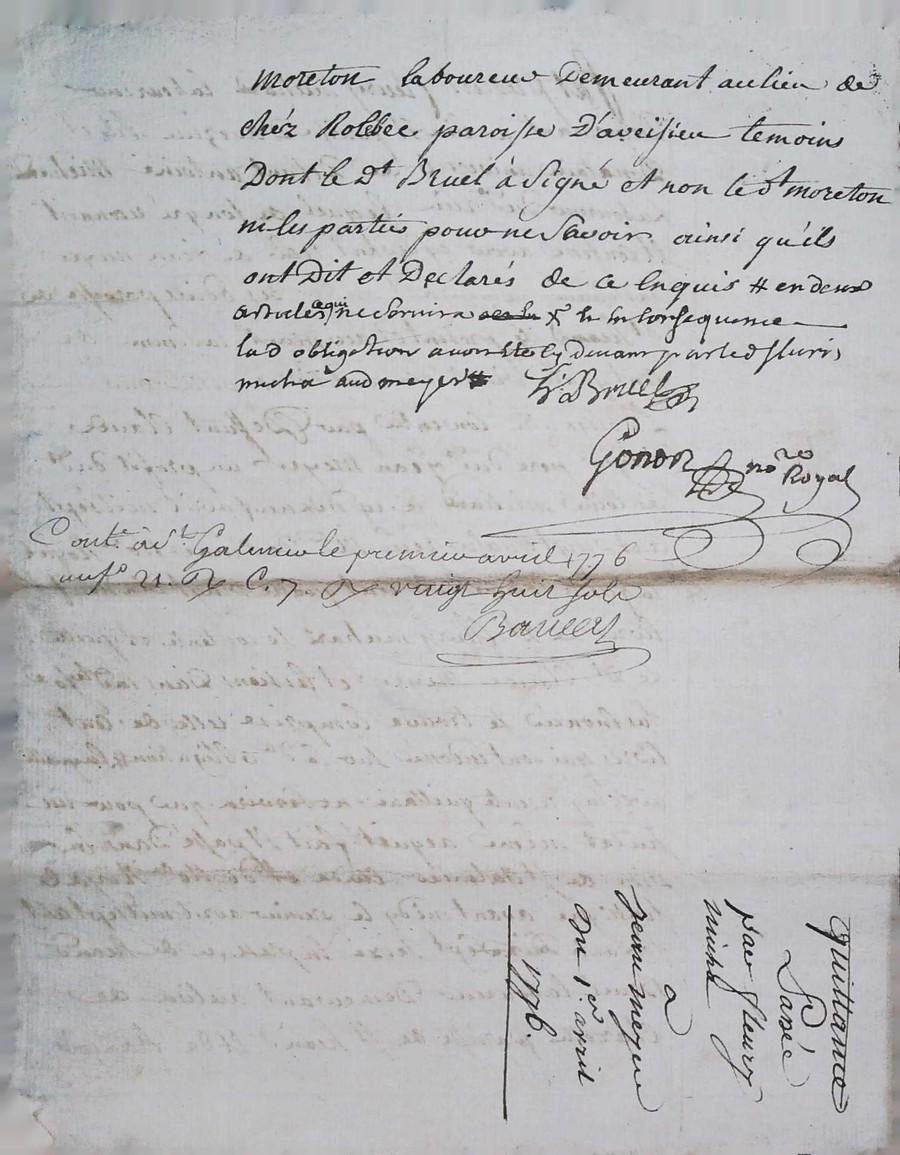 moreton laboureur Demeurant au lieu de
chéz Rolbec paroisse D'aveisieu temoins
Dont le Dt Bruel à Signé et non le dt moreton
ni les parties pour ne Savoir ainsi qu'ils
ont Dit et Declarés de ce Enquis # en deux
articles qui ne servira
en Consequence
lad obligation avoir été cy Devant par led fleuri,
micha aud meyer
Bruel
Gonon nore
Royal
Conté à st Galmier le premier avril 1776
au fo 21. C. 7. vingt huit sols
Quittance
Passée
par fleury
micha
a
jean meyer
Du 1er avril
1776